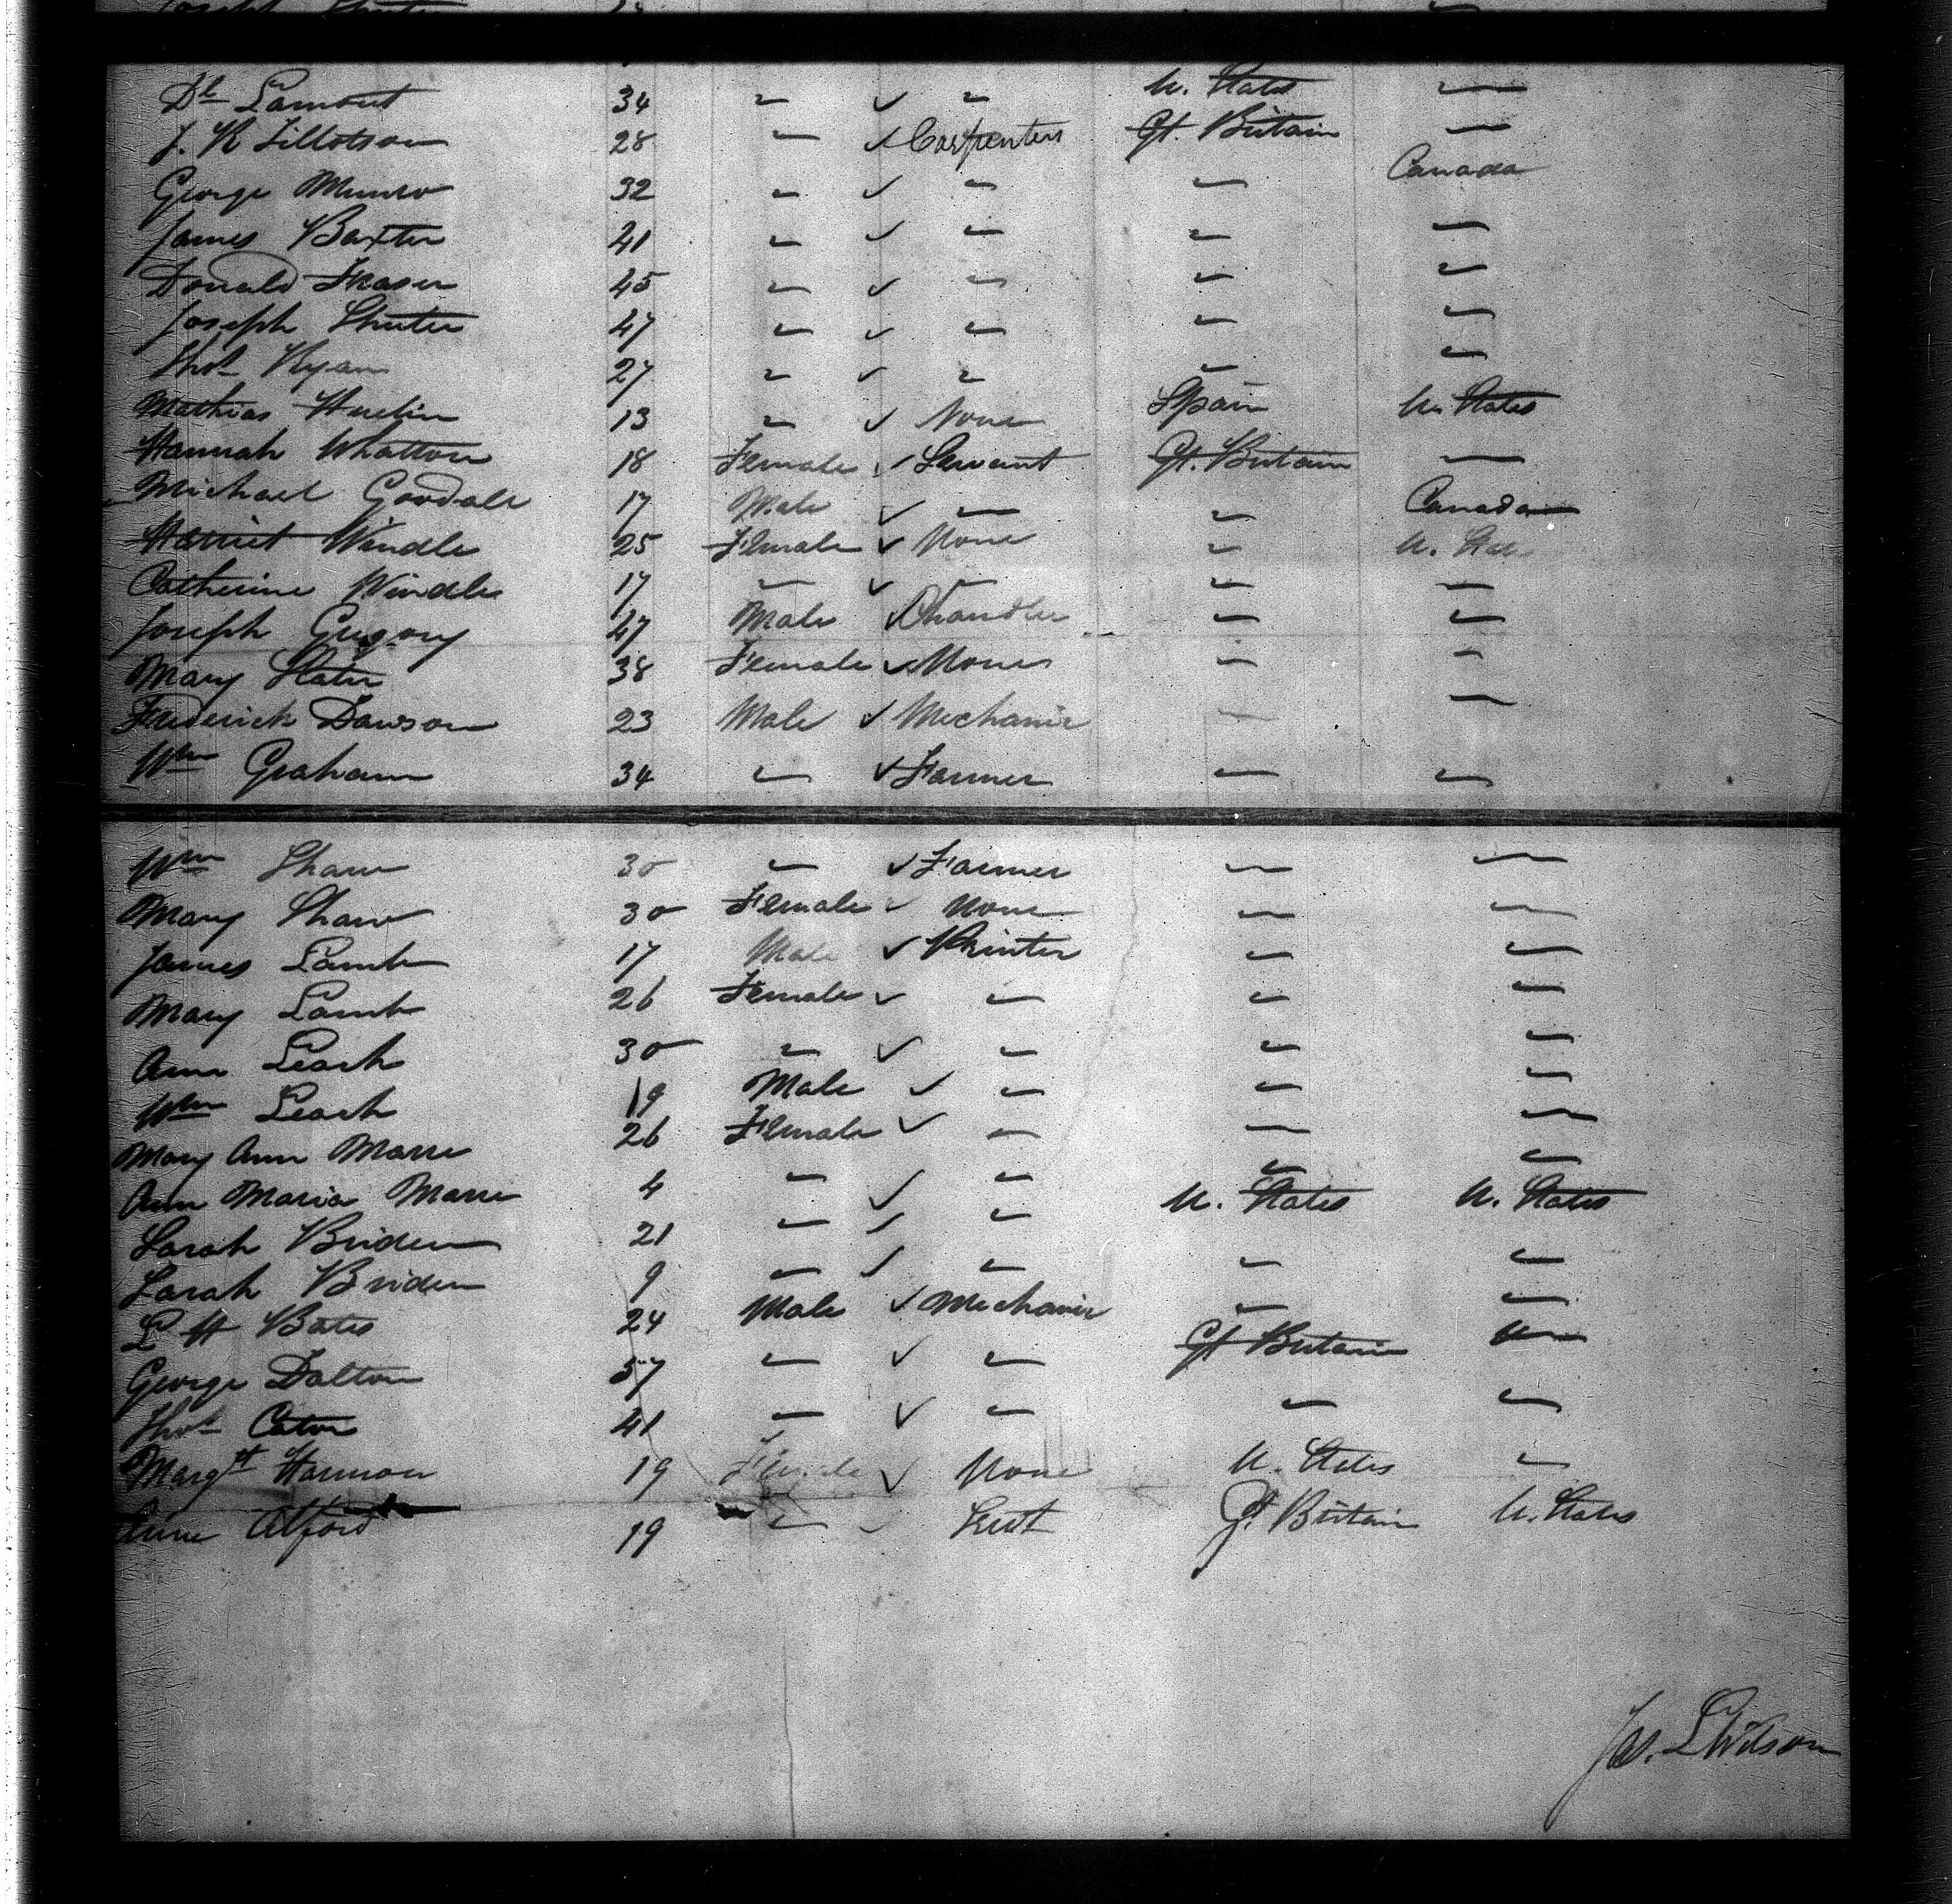 Dl Lamont 34 " ✓ " U. States —
J. R Tillotson 28 " ✓ Carpenters Gt. Britain —
George Munro 32 " ✓ " " Canada
James Baxter 21 " ✓ " " "
Donald Fraser 45 " ✓ " " "
Joseph Shuter 47 " ✓ " " "
Thos Ryan 27 " ✓ " " "
Mathias 13 " ✓ None Spain U. States
Hannah Whatton 18 Female ✓ Servant Gt. Britain —
Michael Goodall 17 Male ✓ " " Canada
Harriet Windle 25 Female ✓ None " U. States
Catherine Windle 17 " ✓ " " "
Joseph Gregory 27 Male ✓ Chandler " "
Mary Slater 38 Female ✓ None " "
Frederick Dawson 23 Male ✓ Mechanic " "
Wm Graham 34 " ✓ Farmer " "
Wm Shaw 30 " ✓ Farmer " "
Mary Shaw 30 Female ✓ None " "
James Lamb 17 Male ✓ Printer " "
Mary Lamb 26 Female ✓ " " "
Ann Leach 30 " ✓ " " "
Wm Leach 19 Male ✓ " " "
Mary Ann Marre 26 Female ✓ " " "
Ann Maria Marre 4 " ✓ " " "
Sarah Briden 21 " ✓ " U. States U. States
Sarah Briden 9 " ✓ " " "
L H Bates 24 Male ✓ Mechanic " "
George Dalton 57 " ✓ " Gt Britain "
Thos Caton 41 " ✓ " " "
Margt Harmon 19 Female ✓ None U. States "
Anne Alford 19 " ✓ Servt Gt. Britain U. States
Jas. L Wilson